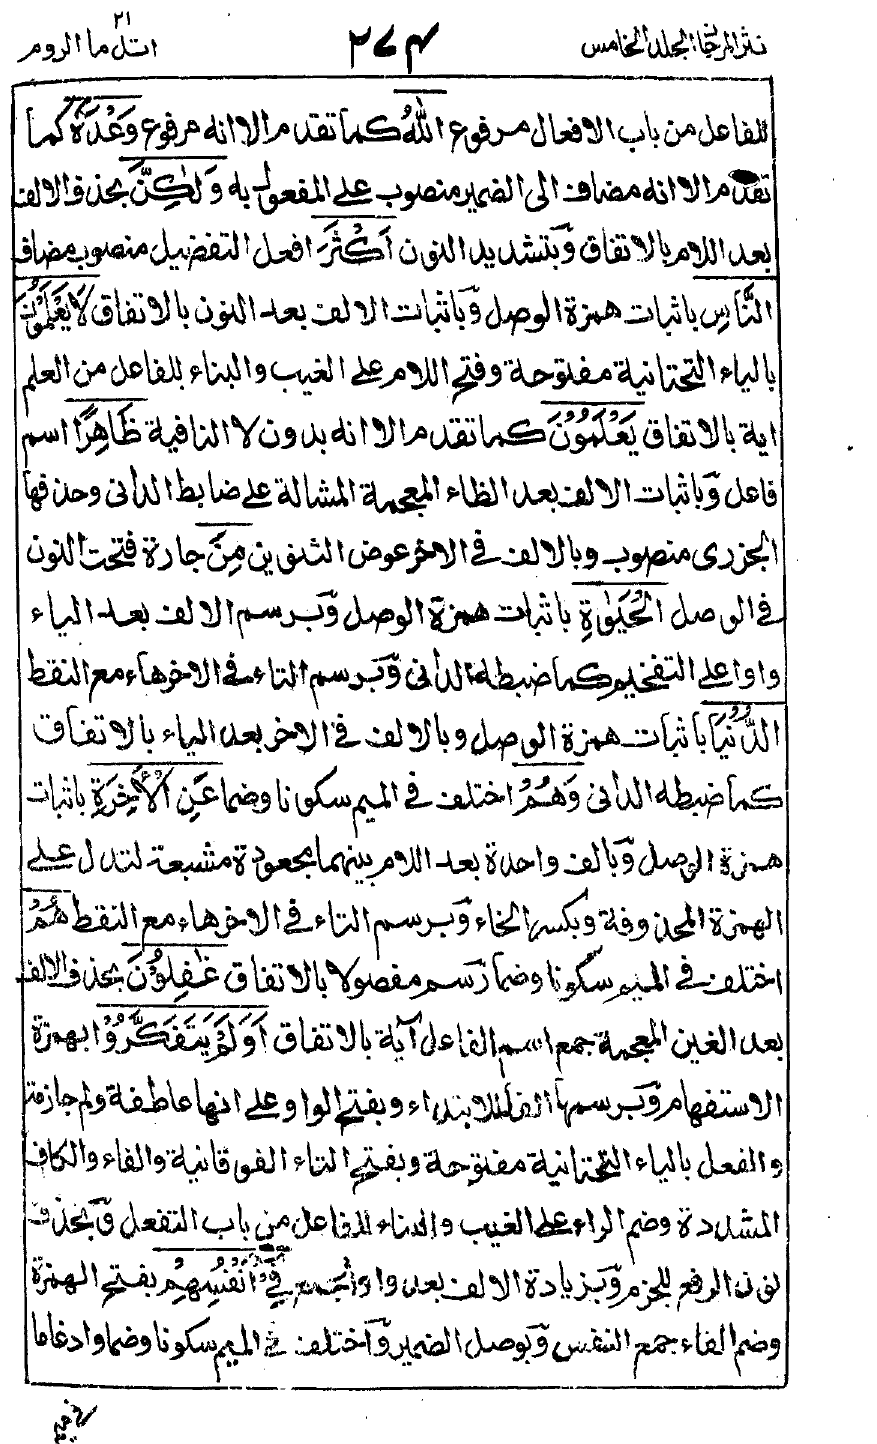 نثر المرجان الجلد الخامس
٢٧٤
٢١
اتل ما الروم
للفاعل من باب الافعال مرفوع اللهُ كما تقدم الا انه مرفوع وَعْدَهٗ كما
تقدم الا انه مضاف الى الضمير منصوب على المفعول به وَلٰكِنَّ بحذف الالف
بعد اللام بالاتفاق وبتشديد النون أَكْثَرَ افعل التفضيل منصوب مضاف
النَّاسِ باثبات همزة الوصل وباثبات الالف بعد النون بالاتفاق لَا يَعْلَمُوْنَ
بالياء التحتانية مفتوحة وفتح اللام على الغيب والبناء للفاعل من العلم
اية بالاتفاق يَعْلَمُوْنَ كما تقدم الا انه بدون لا النافية ظَاهِرًا اسم
فاعل وباثبات الالف بعد الظاء المعجمة المشالة على ضابط الدانى وحذفها
الجزرى منصوب وبالالف فى الاخر عوض التنوين مِنَ جارة فتحت النون
فى الوصل الْحَيٰوةِ باثبات همزة الوصل وبرسم الالف بعد الياء
واوا على التفخيم كما ضبطه الدانى وبرسم التاء فى الاخر هاء مع النقط
الدُّنْيَا باثبات همزة الوصل وبالالف فى الاخر بعد الياء بالاتفاق
كما ضبطه الدانى وَهُمْ اختلف فى الميم سكونا وضما عَنِ الْاٰخِرَةِ باثبات
همزة الوصل وبالف واحدة بعد اللام بينهما مجعودة مشبعة لتدل على
الهمزة المحذوفة وبكسر الخاء وبرسم التاء فى الاخر هاء مع النقط هُمْ
اختلف فى الميم سكونا وضما رسم مفصولا بالاتفاق غٰفِلُوْنَ بحذف الالف
بعد الغين المعجمة جمع اسم الفاعل آية بالاتفاق أَوَلَمْ يَتَفَكَّرُوْا بهمزة
الاستفهام وبرسمها الفا للابتداء وبفتح الواو على انها عاطفة ولم جازمة
والفعل بالياء التحتانية مفتوحة وبفتح التاء الفوقانية والفاء والكاف
المشددة وضم الراء على الغيب والبناء للفاعل من باب التفعل وبحذف
نون الرفع للجزم وبزيادة الالف بعد واو الجمع فِيْ أَنْفُسِهِمْ بفتح الهمزة
وضم الفاء جمع النفس وبوصل الضمير واختلف فى الميم سكونا وضما وادغاما